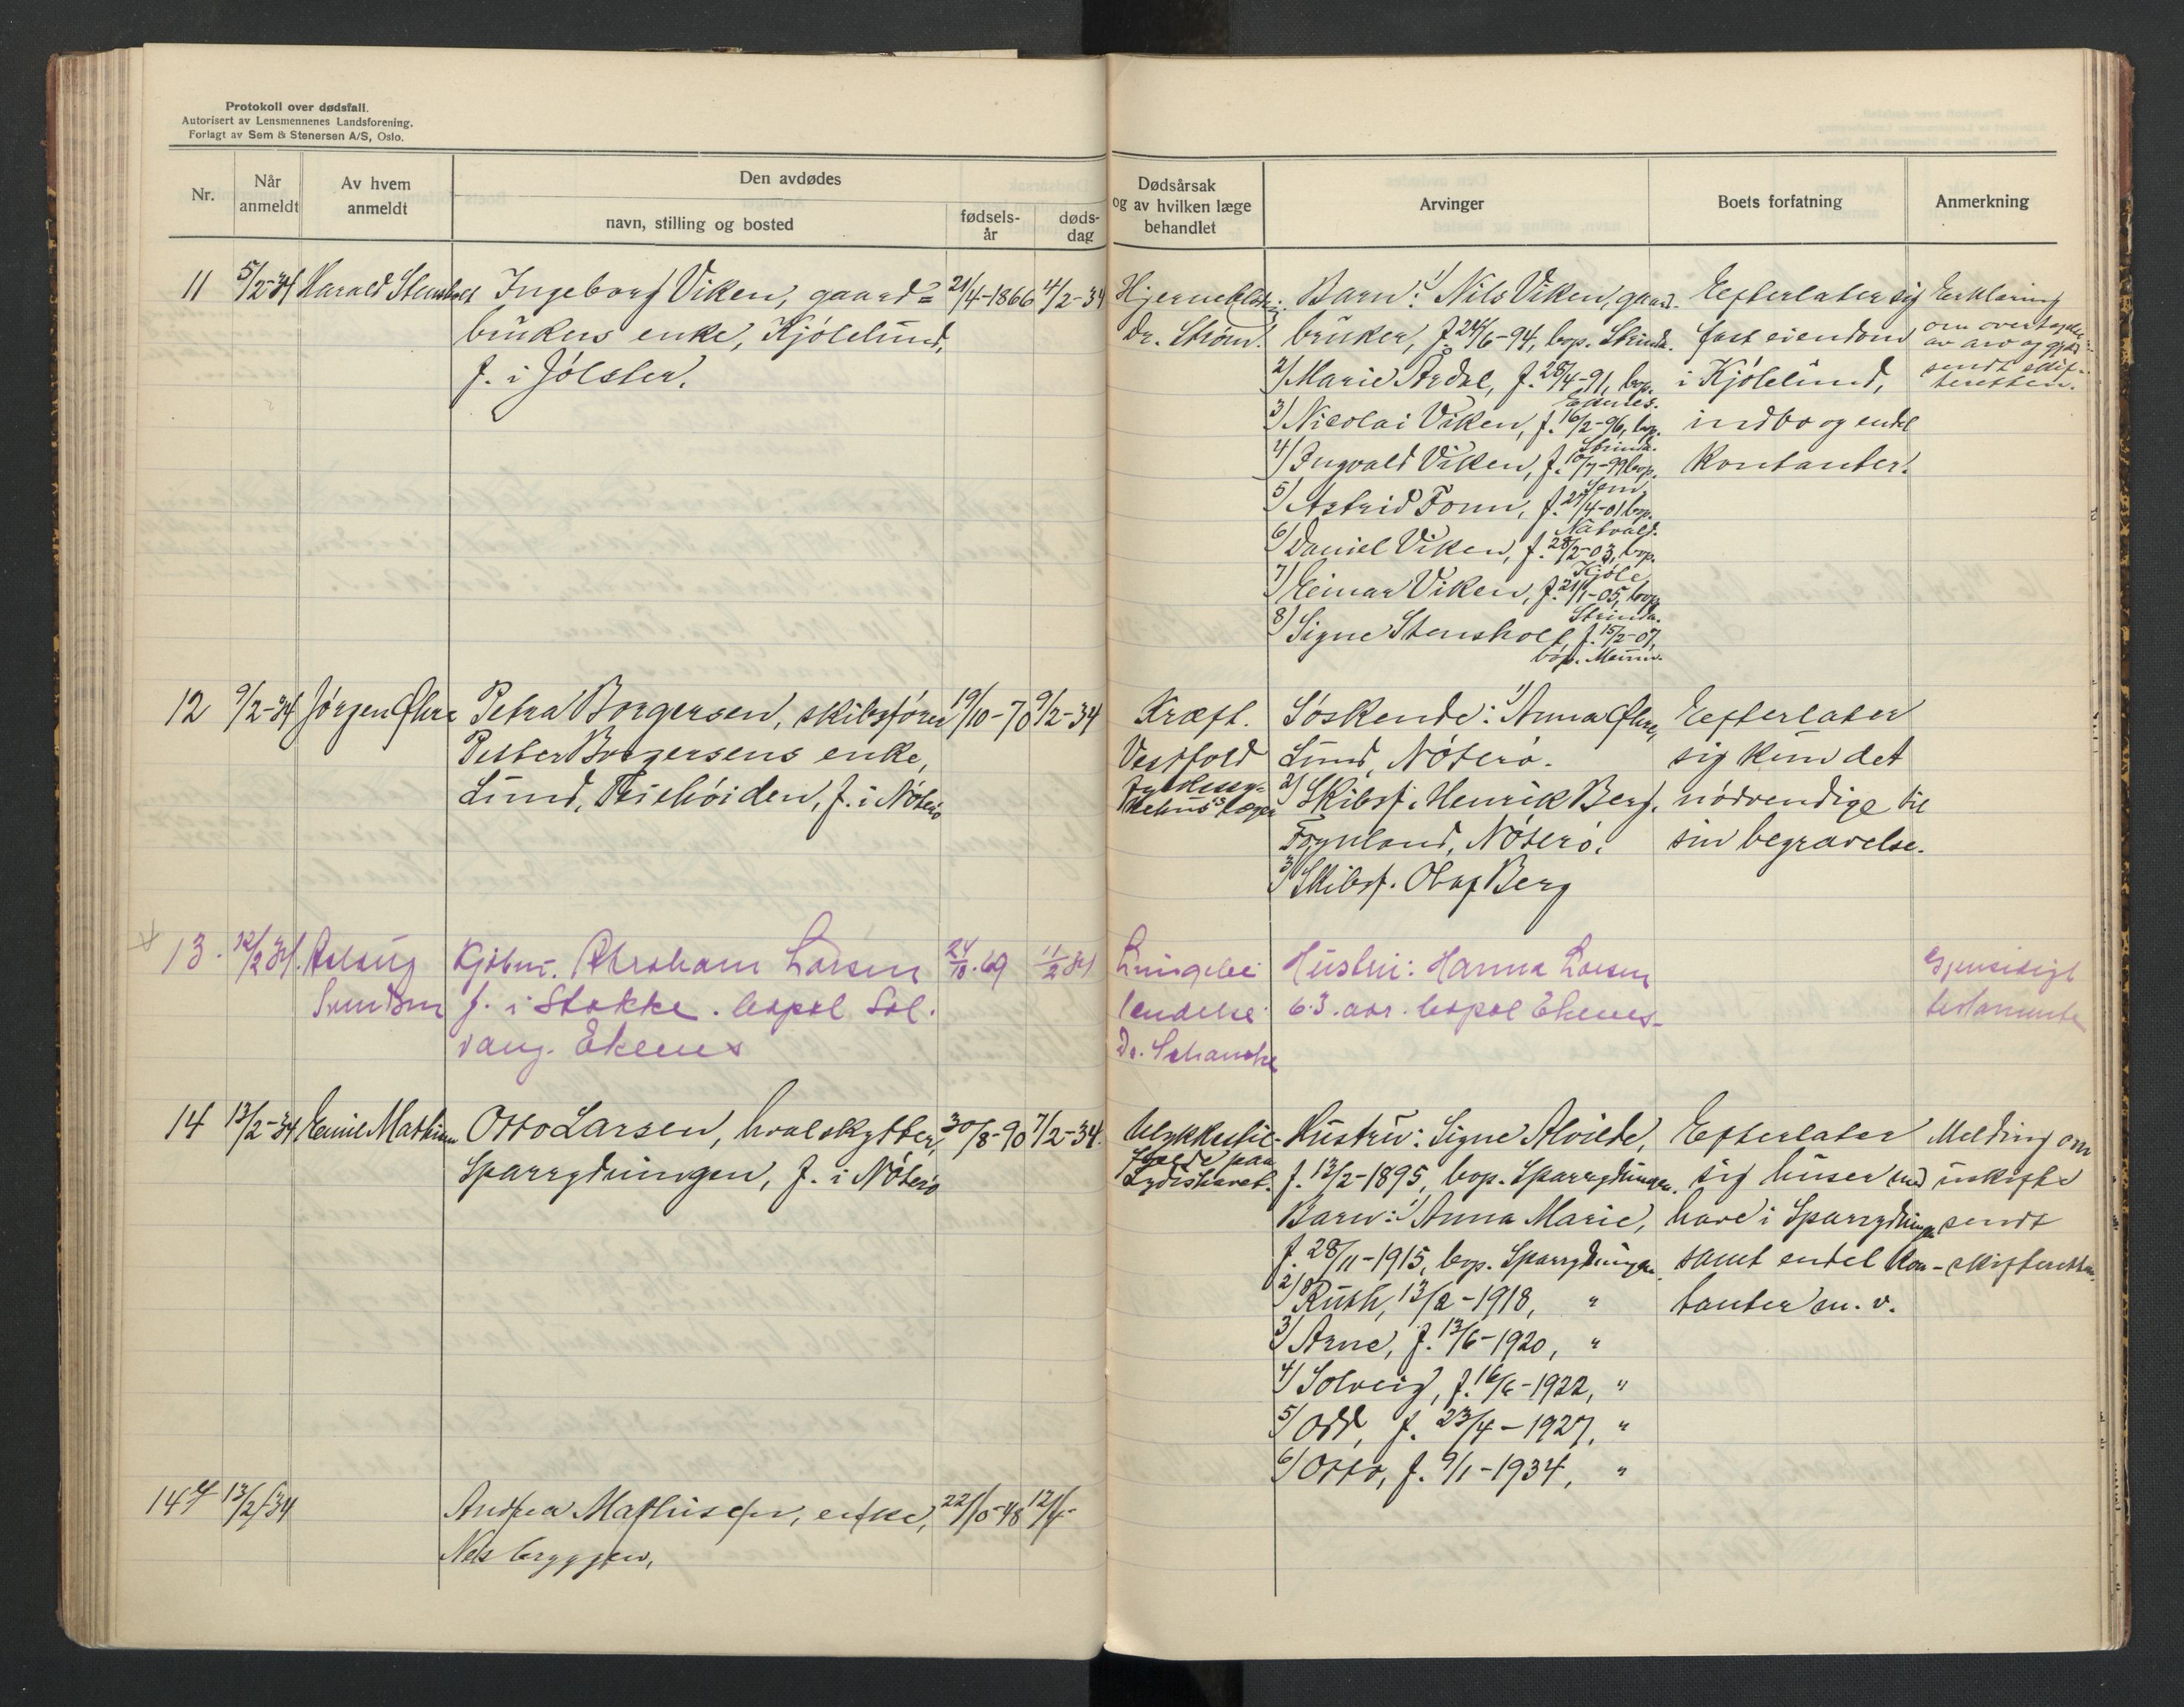 Protokoll over dødsfall.
Autorisert av Lensmennenes Landsforening.
Forlagt av Sem & Stenersen A/S, Oslo.
Nr.
Når anmeldt
Av hvem anmeldt
Den avdødes
navn, stilling og bosted
fødsels-år
døds-dag
Dødsårsak og av hvilken læge behandlet
Arvinger
Boets forfatning
Anmerkning
11 5/2-34 Harald Stensholt Ingeborg Viken, gaard= 21/4-1866 4/2-34
brukers enke, Kjölelund,
f. i Jölster.
Dr. Ström.
Barn: 1) Nils Viken, gaard-
bruker, f. 24/6-94, bop. Strinda.
2) Marie Årdal, f. 25/4-91, bop.
Eidnes.
3) Nicolai Viken, f. 16/2-96, bop.
Strinda.
4) Ingvald Viken, f. 10/7-99 bop.
Sem,
5) Astrid Fonn, f. 27/4-01 bop.
6) Daniel Viken, f. 28/2-03, bop.
Kjöle,
7) Einar Viken, f. 21/1-05, bop.
Strinda.
8) Signe Stensholt, f. 15/2-07,
bop.
Efterlater sig
fast eiendom
i Kjölelund,
indbo og endel
kontanter.
Erklæring
om overtagelse
av arv og gjeld
sendt skif-
teretten.
12 9/2-34 Jørgen Øhre Petra Borgersen, skibsförer 19/10-70 9/2-34
Petter Borgersens enke,
Lund, f. i Nöterö
Kræft.
Vestfold
Söskende: 1) Anna Øhre,
Lund, Nöterö.
2) Skibsf. Henrik Berg,
Föynland, Nöterö.
3) Skibsf. Olaf Berg
Efterlater
sig kun det
nödvendige til
sin begravelse.
13. 12/2 34. Aslaug
Svendsen
Kjöbm. Abraham Larsen 24/10.69 11/2 34
f. i Stokke. bopel Sol-
vang. Ekenes
Lungebe-
tendelse
Dr. Schanche
Hustru: Hanna Larsen
63 aar. bopel Ekenes-
Gjensidigt
testamente
14 13/2-34 Emil Mathisen Otto Larsen, hvalskytter, 30/8-90 7/2-34.
Sparrydningen, f. i Nöterö
Ulykkestil-
fælde paa
Sydishavet.
Hustru: Signe Alvilde,
f. 13/2-1895, bop. Sparrydningen.
Barn: 1) Anna Marie,
f. 28/11-1915, bop. Sparrydningen.
2) Ruth, 13/2-1918, "
3) Arne, f. 13/6-1920, "
4) Solveig, f. 16/6-1922, "
5) Odd, f. 23/4-1927, "
6) Otto, f. 9/1-1934, "
Efterlater
sig huser med
have i Sparrydningen
samt endel kon-
tanter m. v.
Melding om
uskifte
sendt
skifteretten.
14 13/2-34 Andrea Mathisen, enke, 22/10-48 12/
Nesbryggen,